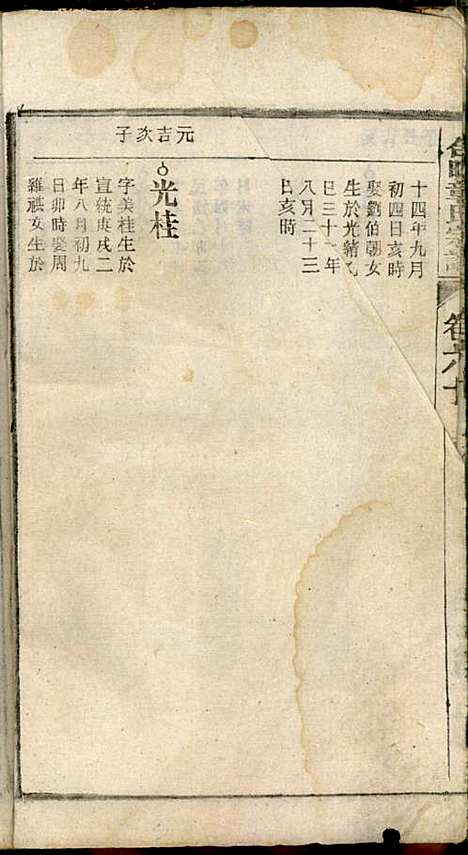 卷六十
十四年九月
初四日亥時
娶劉伯朝女
生於光緒乙
巳三十一年
八月二十三
日亥時
元吉次子
光桂
字美桂生於
宣統庚戌二
年八月初九
日卯時娶周
維祺女生於